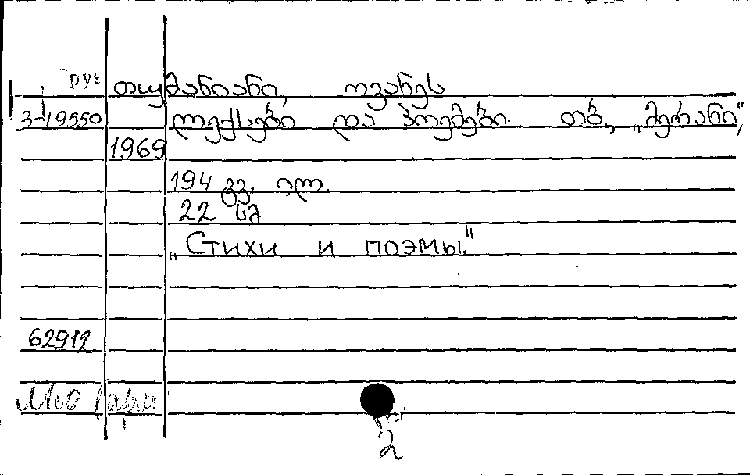 თუმანიანი, ოვანეს
3-19550 ლექსები და პოემები. თბ., „მერანი",
1969
194 გვ. ილ.
22 სმ
„Стихи и поэмы"
62912
2